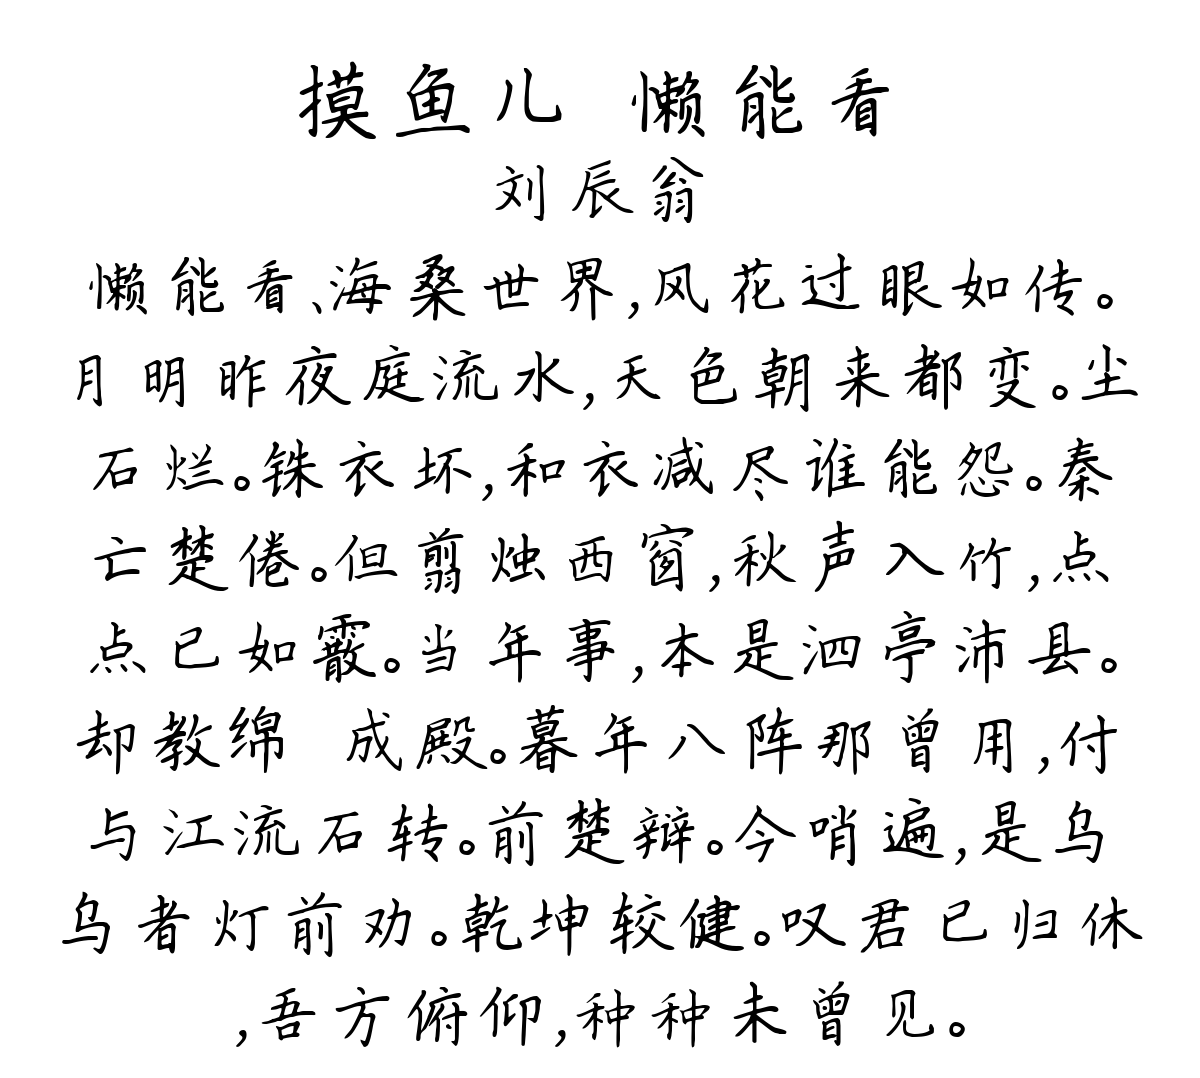 摸鱼儿 懒能看
刘辰翁
懒能看、海桑世界,风花过眼如传。
月明昨夜庭流水,天色朝来都变。尘
石烂。铢衣坏,和衣减尽谁能怨。秦
亡楚倦。但翦烛西窗,秋声入竹,点
点已如霰。当年事,本是泗亭沛县。
却教绵 成殿。暮年八阵那曾用,付
与江流石转。前楚辩。今哨遍,是乌
乌者灯前劝。乾坤较健。叹君已归休
,吾方俯仰,种种未曾见。